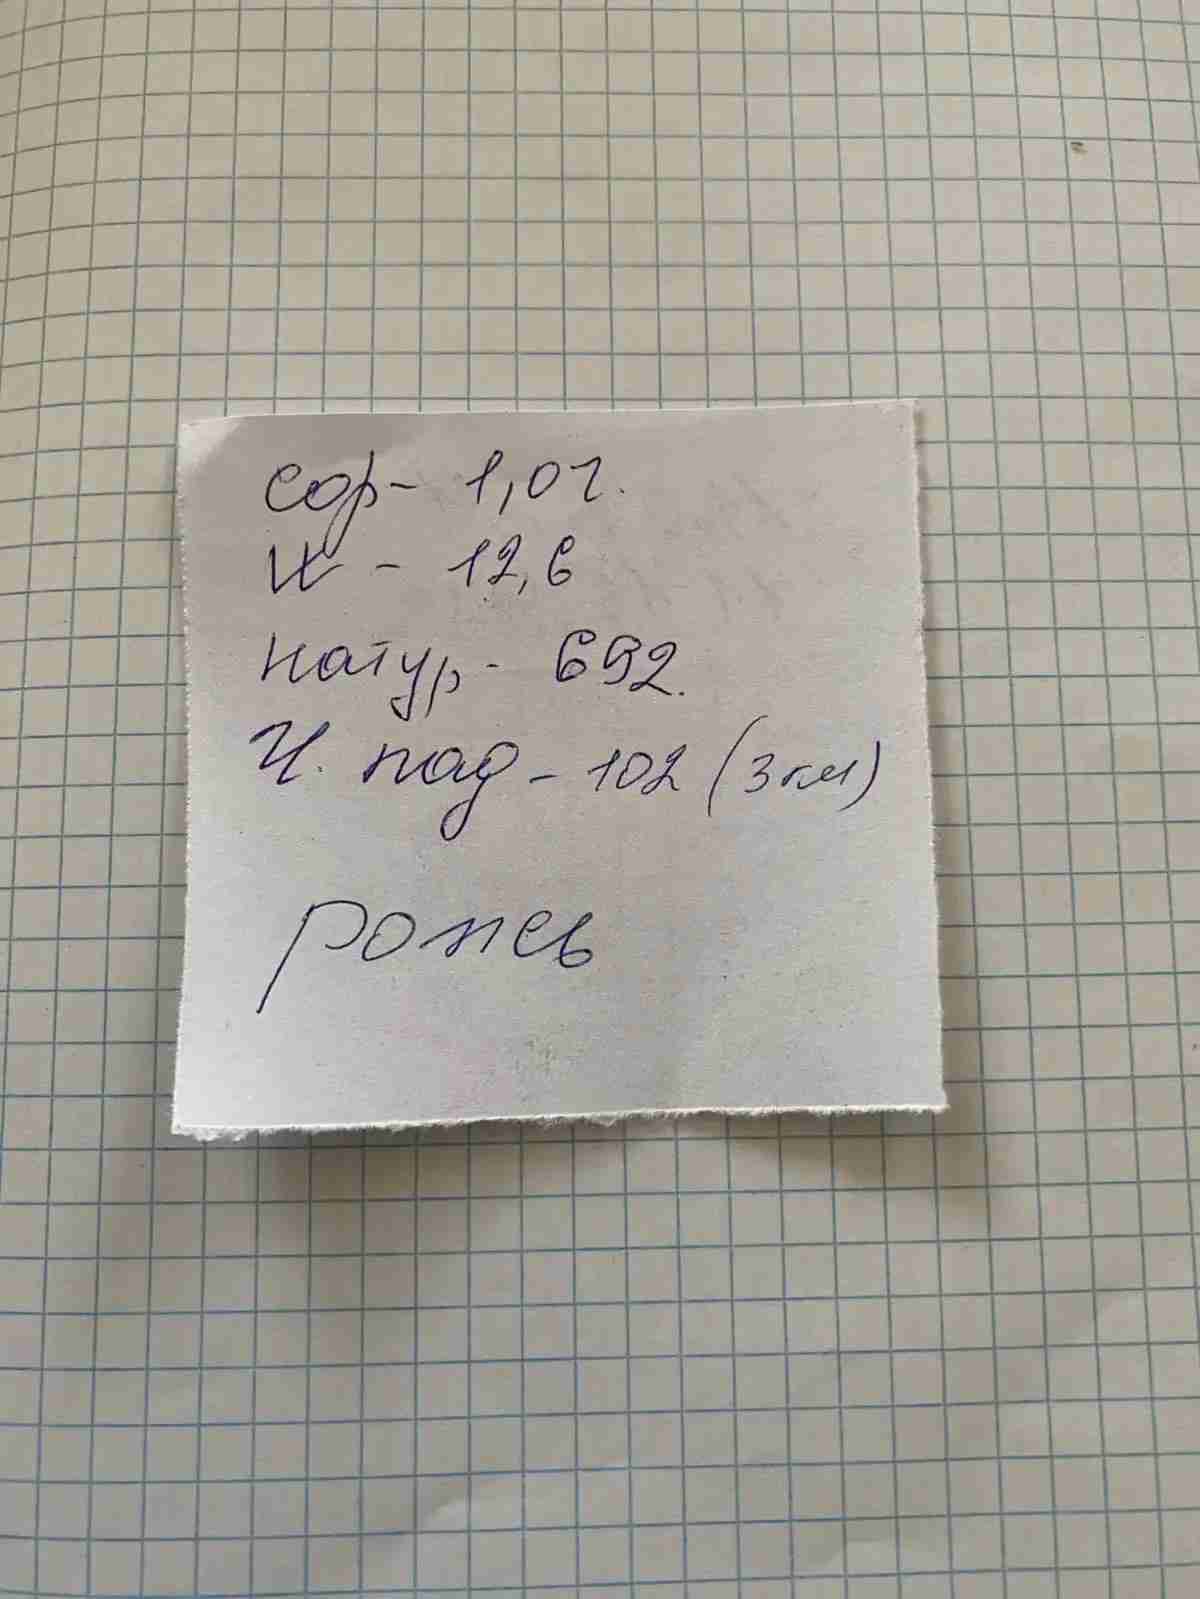 сор - 1,07.
W - 12,6
натур - 692.
Ч. пад - 102 (3 кл)
рожь